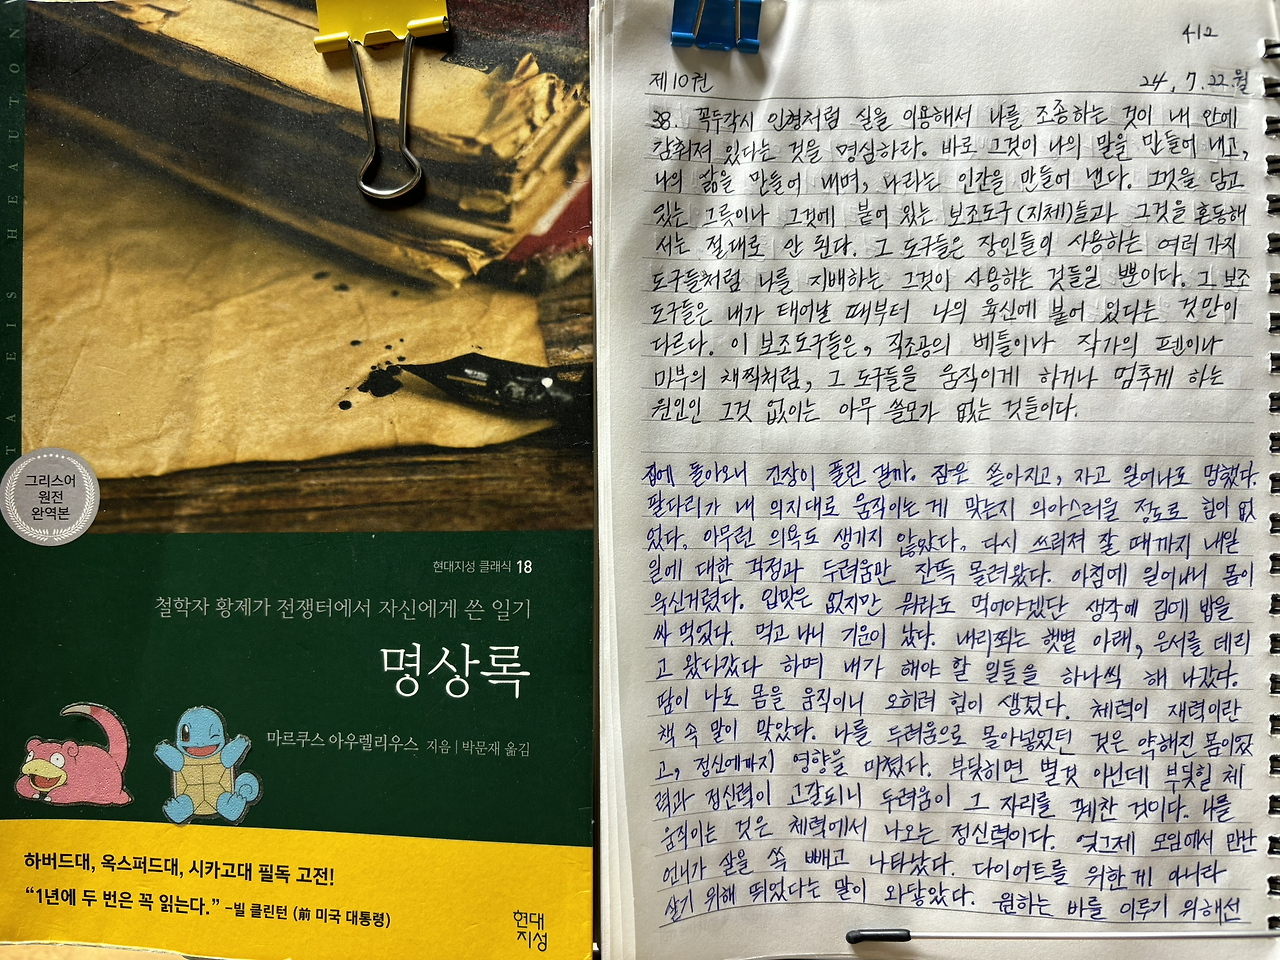 TAEISHEAUTON
그리스어
원전
완역본
현대지성 클래식 18
철학자 황제가 전쟁터에서 자신에게 쓴 일기
명상록
마르쿠스 아우렐리우스 지음 | 박문재 옮김
하버드대, 옥스퍼드대, 시카고대 필독 고전!
“1년에 두 번은 꼭 읽는다.” –빌 클린턴 (前 미국 대통령)
현대
지성
412
제10권 24. 7. 22. 월
38. 꼭두각시 인형처럼 실을 이용해서 나를 조종하는 것이 내 안에
감춰져 있다는 것을 명심하라. 바로 그것이 나의 말을 만들어 내고,
나의 삶을 만들어 내며, 나라는 인간을 만들어 낸다. 그것을 담고
있는 그릇이나 그것에 붙어 있는 보조도구(지체)들과 그것을 혼동해
서는 절대로 안 된다. 그 도구들은 장인들의 사용하는 여러 가지
도구들처럼 나를 지배하는 그것이 사용하는 것들일 뿐이다. 그 보조
도구들은 내가 태어날 때부터 나의 육신에 붙어 있다는 것만이
다르다. 이 보조도구들은, 직조공의 베틀이나 작가의 펜이나
마부의 채찍처럼, 그 도구들을 움직이게 하거나 멈추게 하는
원인인 그것 없이는 아무 쓸모가 없는 것들이다.
집에 돌아오니 긴장이 풀린 걸까. 잠은 쏟아지고, 자고 일어나도 멍했다.
팔다리가 내 의지대로 움직이는 게 맞는지 의아스러울 정도로 힘이 없
었다. 아무런 의욕도 생기지 않았다. 다시 쓰러져 잘 때까지 내일
일에 대한 걱정과 두려움만 잔뜩 몰려왔다. 아침에 일어나니 몸이
욱신거렸다. 입맛은 없지만 뭐라도 먹어야겠단 생각에 김에 밥을
싸 먹었다. 먹고 나니 기운이 났다. 내리쬐는 햇볕 아래, 은서를 데리
고 왔다갔다 하며 내가 해야 할 일들을 하나씩 해 나갔다.
땀이 나도 몸을 움직이니 오히려 힘이 생겼다. 체력이 재력이란
책 속 말이 맞았다. 나를 두려움으로 몰아넣었던 것은 약해진 몸이었
고, 정신에까지 영향을 미쳤다. 부딪히면 별것 아닌데 부딪힐 체
력과 정신력이 고갈되니 두려움이 그 자리를 꿰찬 것이다. 나를
움직이는 것은 체력에서 나오는 정신력이다. 엊그제 모임에서 만난
언니가 살을 쏙 빼고 나타났다. 다이어트를 위한 게 아니라
살기 위해 뛰었다는 말이 와닿았다. 원하는 바를 이루기 위해선